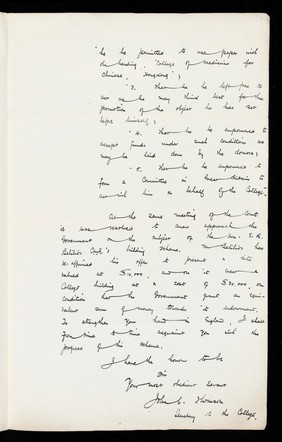 "he be permitted to use paper with
the heading, 'College of Medicine for
Chinese, Hongkong';
"3. That he be left free to
act as he may think best for the
promotion of the object he has set
before himself;
"4. That he be empowered to
accept funds under such conditions as
may be laid down by the donors;
"5. That he be empowered to
form a Committee in Great Britain to
act with him on behalf of the College."
At the same meeting of the Court
it was resolved to approach the
Government on the subject of the Hon. E. R.
Belilios' building scheme. Mr Belilios has
re-affirmed his offer to present a site
valued at $10,000, and on it to erect a
College building at a cost of $30,000, on
condition that the Government grant an equi-
valent sum of money towards its endowment.
To strengthen your hands in England, I shall
from time to time acquaint you with the
progress of this scheme.
I have the honor to be
Sir
Your most obedient Servant
John C. Thomson
Secretary to the College.